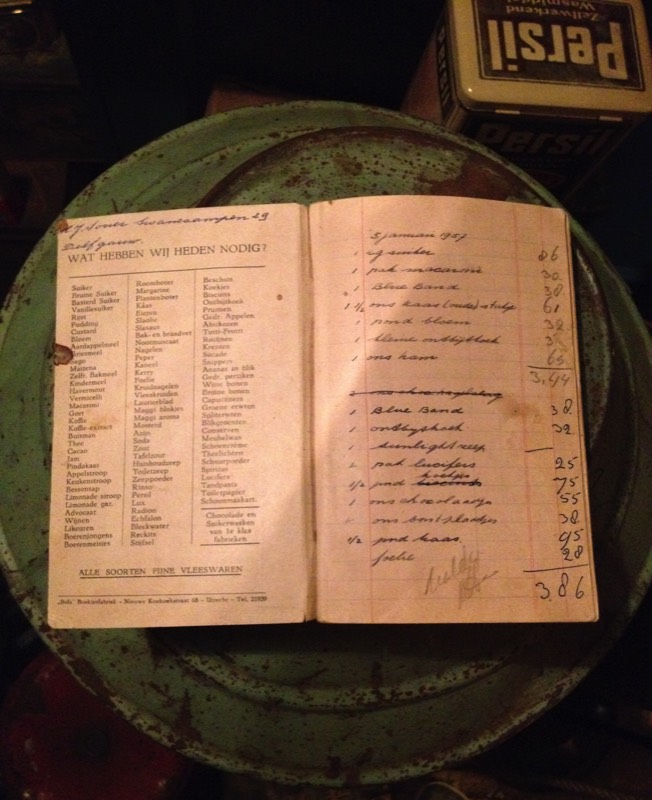 Zelfwerkend
Wasmiddel
Persil
Persil
29
Delfgauw.
WAT HEBBEN WIJ HEDEN NODIG?
Suiker
Bruine Suiker
Basterd Suiker
Vanillesuiker
Rijst
Pudding
Custard
Bloem
Aardappelmeel
Griesmeel
Sago
Maizena
Zelfr. Bakmeel
Kindermeel
Havermout
Vermicelli
Macaroni
Gort
Koffie
Koffie-extract
Buisman
Thee
Cacao
Jam
Pindakaas
Appelstroop
Keukenstroop
Bessensap
Limonade siroop
Limonade gaz.
Advocaat
Wijnen
Likeuren
Boerenjongens
Boerenmeisjes
Roomboter
Margarine
Plantenboter
Kaas
Slaolie
Slasaus
Bak- en braadvet
Nootmuscaat
Nagelen
Peper
Kaneel
Kerry
Foelie
Kruidnagelen
Vleeskruiden
Laurierblad
Maggi blokjes
Maggi aroma
Mosterd
Azijn
Soda
Zout
Tafelzout
Huishoudzeep
Toiletzeep
Zeeppoeder
Rinso
Persil
Lux
Radion
Echfalon
Blockwater
Reckitts
Stijfsel
Beschuit
Koekjes
Biscuits
Ontbijtkoek
Pruimen
Gedr. Appelen
Abrikozen
Tutti-Frutti
Rozijnen
Krenten
Sucade
Snippers
Ananas in blik
Gedr. perziken
Witte bonen
Bruine bonen
Capucijners
Groene erwten
Spliterwten
Blikgroenten
Conserven
Meubelwas
Schoencrème
Theelichten
Schuurpoeder
Spiritus
Lucifers
Tandpasta
Toiletpapier
Schoonmaakart.
Chocolade en
Suikerwerken
van 1e klas
fabrieken
ALLE SOORTEN FIJNE VLEESWAREN
Boekjesfabriek - Nieuwe Koekoekstraat 68 - Utrecht - Tel.
5 januari 1957
1 kg suiker 86
1 pak macaroni 30
1 Blue Band 38
1 1/2 ons kaas (oude) stukje 61
1 pond bloem 32
1 kleine ontbijtkoek
1 ons ham 65
3.44
1 Blue Band 38
1 ontbijtkoek 32
1 sunlight zeep
2 pak lucifers 25
1/2 pnd 75
1 ons chocolaadje 55
1 ons borstplaatjes 38
1/2 pnd kaas 95
foelie 28
3.86